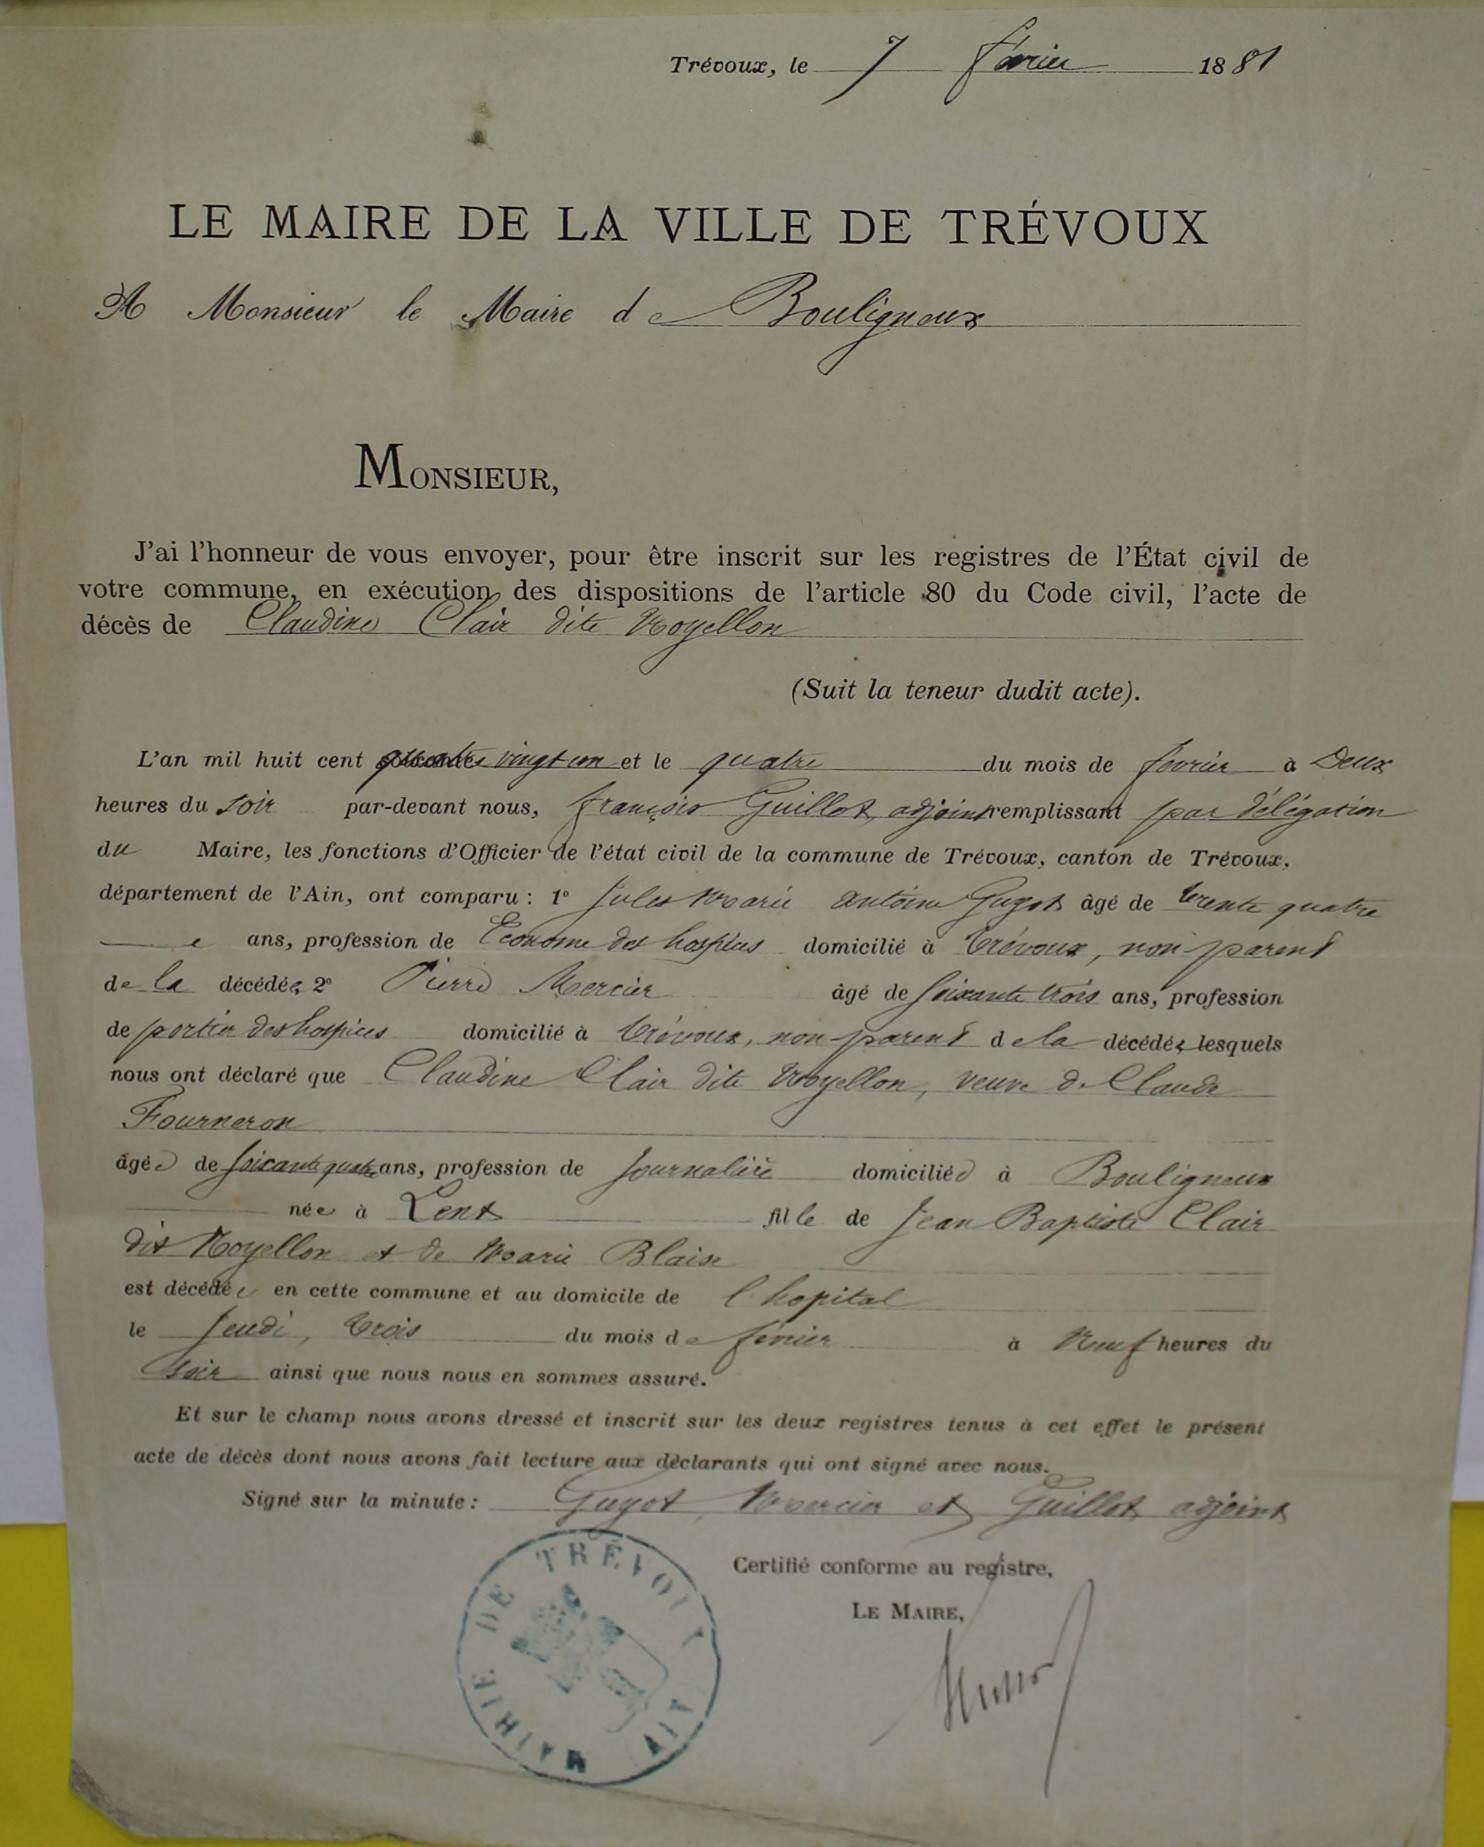 Trévoux, le 7 février 1881
LE MAIRE DE LA VILLE DE TRÉVOUX
A Monsieur le Maire de Bouligneux
MONSIEUR,
J'ai l'honneur de vous envoyer, pour être inscrit sur les registres de l'État civil de
votre commune, en exécution des dispositions de l'article 80 du Code civil, l'acte de
décès de Claudine Clair dite Noyellon
(Suit la teneur dudit acte).
L'an mil huit cent quatre vingt un et le quatre du mois de février à Deux
heures du soir par-devant nous, françois Guillot, adjoint remplissant par délégation
du Maire, les fonctions d'Officier de l'état civil de la commune de Trévoux, canton de Trévoux,
département de l'Ain, ont comparu : 1° Jules Marie Antoine Guyot âgé de trente quatre
ans, profession de Econome des hospices domicilié à Trévoux, non parent
de la décédée, 2° Pierre Mercier âgé de soixante trois ans, profession
de portier des hospices domicilié à Trévoux, non parent de la décédée lesquels
nous ont déclaré que Claudine Clair dite Noyellon, veuve de Claude
Fourneron
âgée de soixante quatre ans, profession de journalière domiciliée à Bouligneux
née à Lent fille de Jean Baptiste Clair
dit Noyellon et de Marie Blaise
est décédée en cette commune et au domicile de l'hopital
le Jeudi, trois du mois de février à Neuf heures du
soir ainsi que nous nous en sommes assuré.
Et sur le champ nous avons dressé et inscrit sur les deux registres tenus à cet effet le présent
acte de décès dont nous avons fait lecture aux déclarants qui ont signé avec nous.
Signé sur la minute : Guyot, Mercier et Guillot adjoint
Certifié conforme au registre,
LE MAIRE,
MAIRIE DE TRÉVOUX AIN